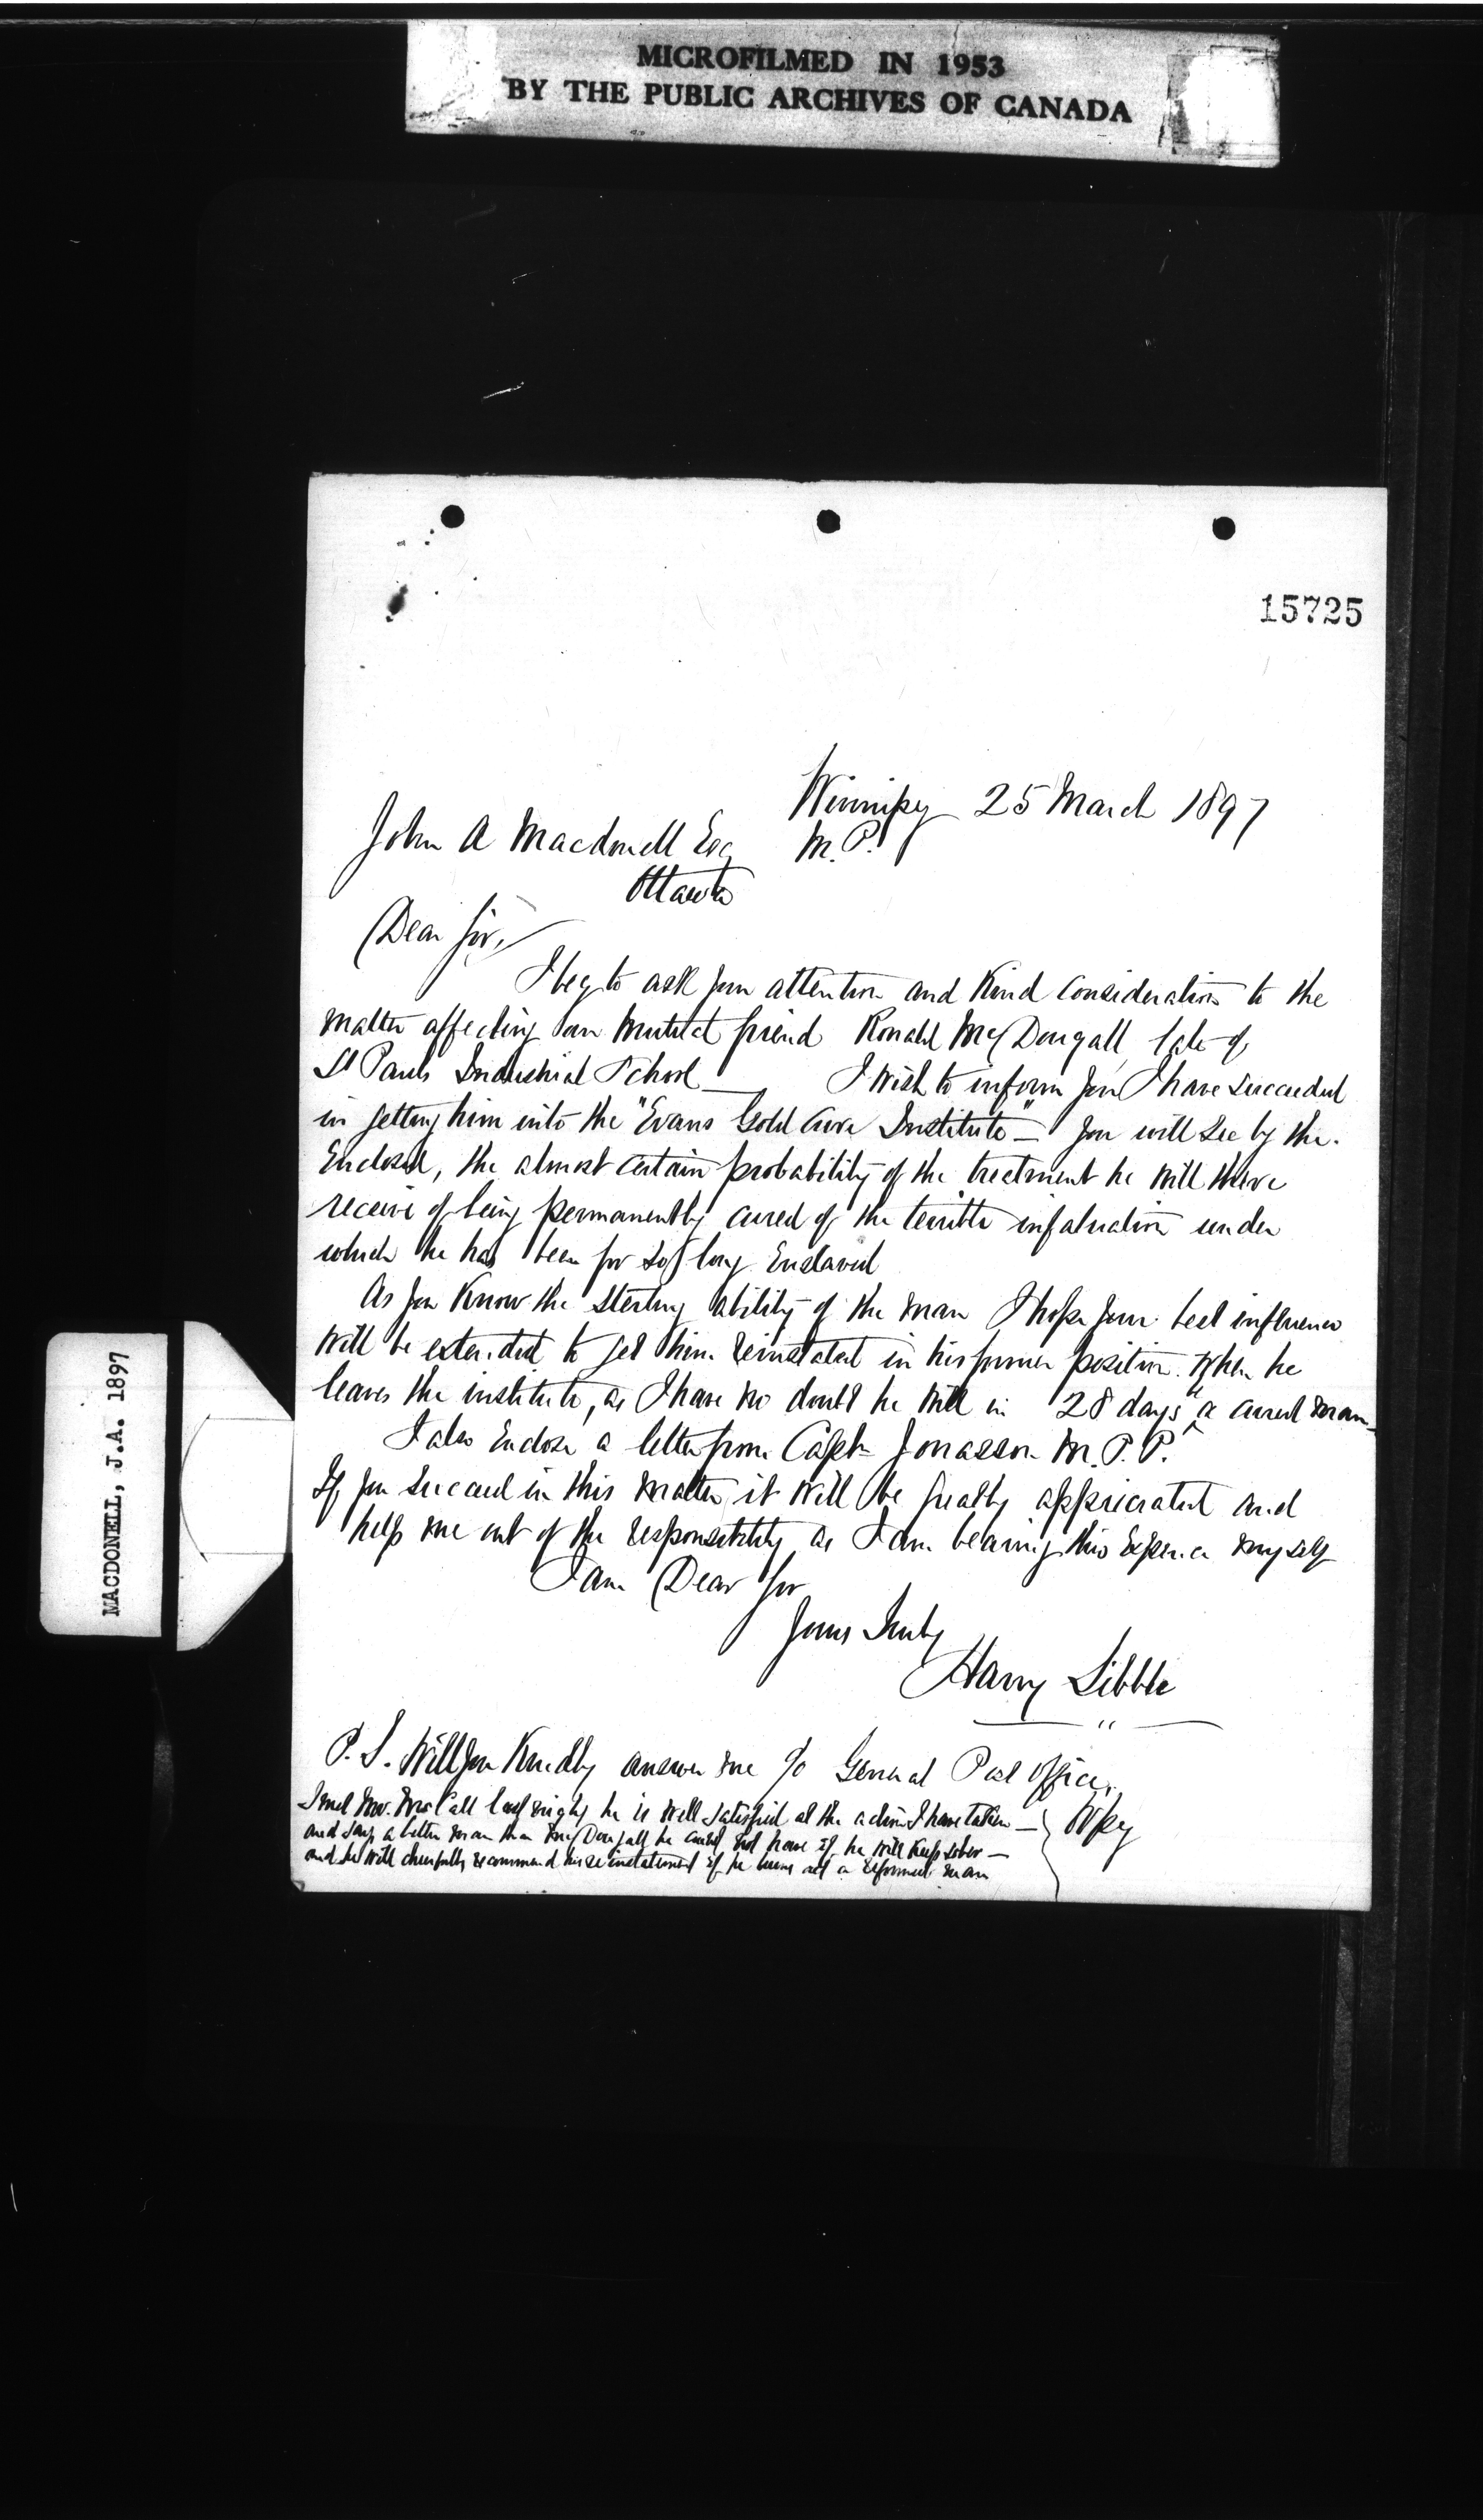 MICROFILMED IN 1953
BY THE PUBLIC ARCHIVES OF CANADA
15725
Winnipeg 25 March 1897
John A Macdonell Esq M.P.
Ottawa
Dear Sir,
I beg to ask your attention and Kind Consideration to the
matter affecting our mutual friend Ronald McDougall, late of
St Pauls Industrial School — I wish to inform you I have succeeded
in getting him into the "Evans Gold Cure Institute" — You will see by the
Enclosed, the almost certain probability of the treatment he will there
receive of being permanently cured of the terrible infatuation under
which he has been for so long Enslaved
As you Know the sterling ability of the man I hope your best influence
will be extended to get him reinstated in his former position when he
leaves the institute, as I have no doubt he will in 28 days "a cured man"
I also Enclose a letter from Capt Jonasson M.P.P.
If you succeed in this matter, it will be greatly appriciated and
help me out of the responsibility as I am bearing this Expence myself
I am Dear Sir
Yours Truly
Harry Sibble
P.S. Will you Kindly answer me c/o General Post Office,
Wpeg
I met Mr. McCall last night he is well satisfied at the action I have taken —
and says a better man than McDougall he could not have if he will Keep sober —
and he will cheerfully recommend his reinstatement if he turns out a reformed man
MACDONELL, J.A. 1897